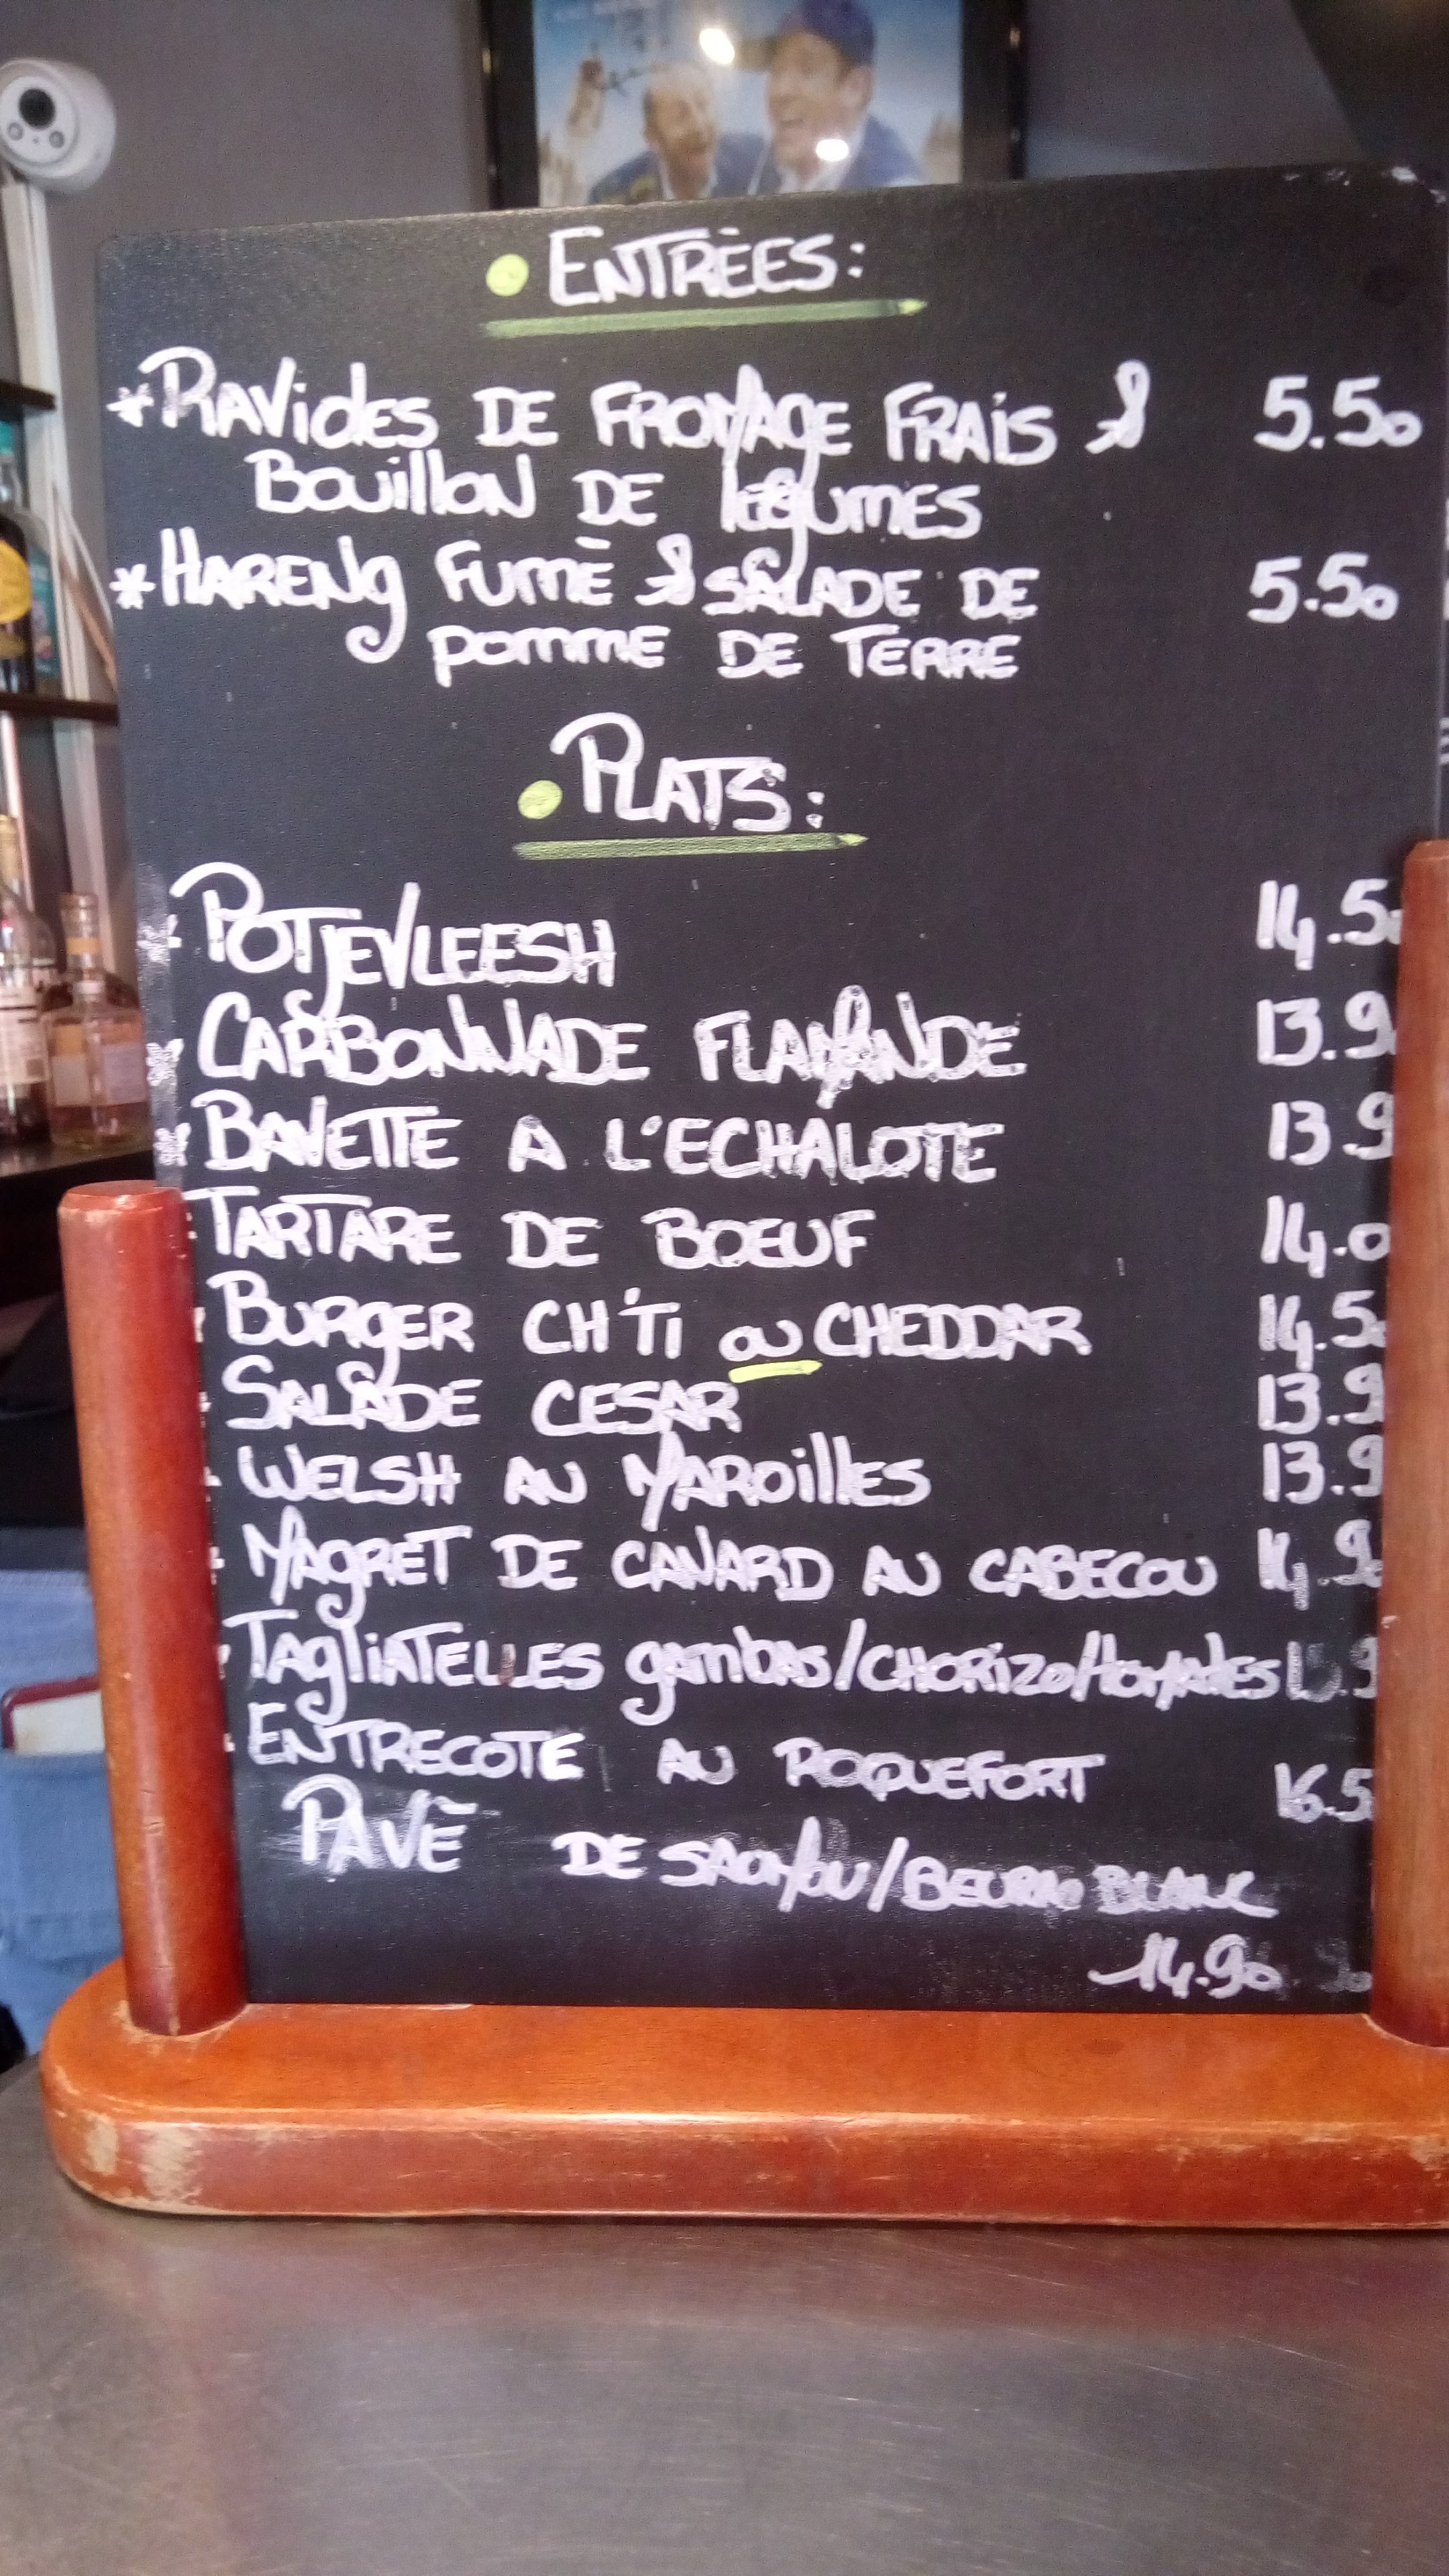 • ENTRÉES:
*RAVIOLES DE FROMAGE FRAIS & 5.50
BOUILLON DE LEGUMES
*HARENG FUMÉ & SALADE DE 5.50
POMME DE TERRE
• PLATS:
* POTJEVLEESH 14.50
* CARBONNADE FLAMANDE 13.9
* BAVETTE A L'ECHALOTE 13.9
TARTARE DE BOEUF 14.0
BURGER CH'TI OU CHEDDAR 14.50
SALADE CESAR 13.9
WELSH AU MAROILLES 13.9
MAGRET DE CANARD AU CABECOU 14.90
TAGLIATELLES gambas/CHORIZO/tomates
ENTRECOTE AU ROQUEFORT 16.5
PAVÉ DE SAUMON/BEURRE BLANC
14.90